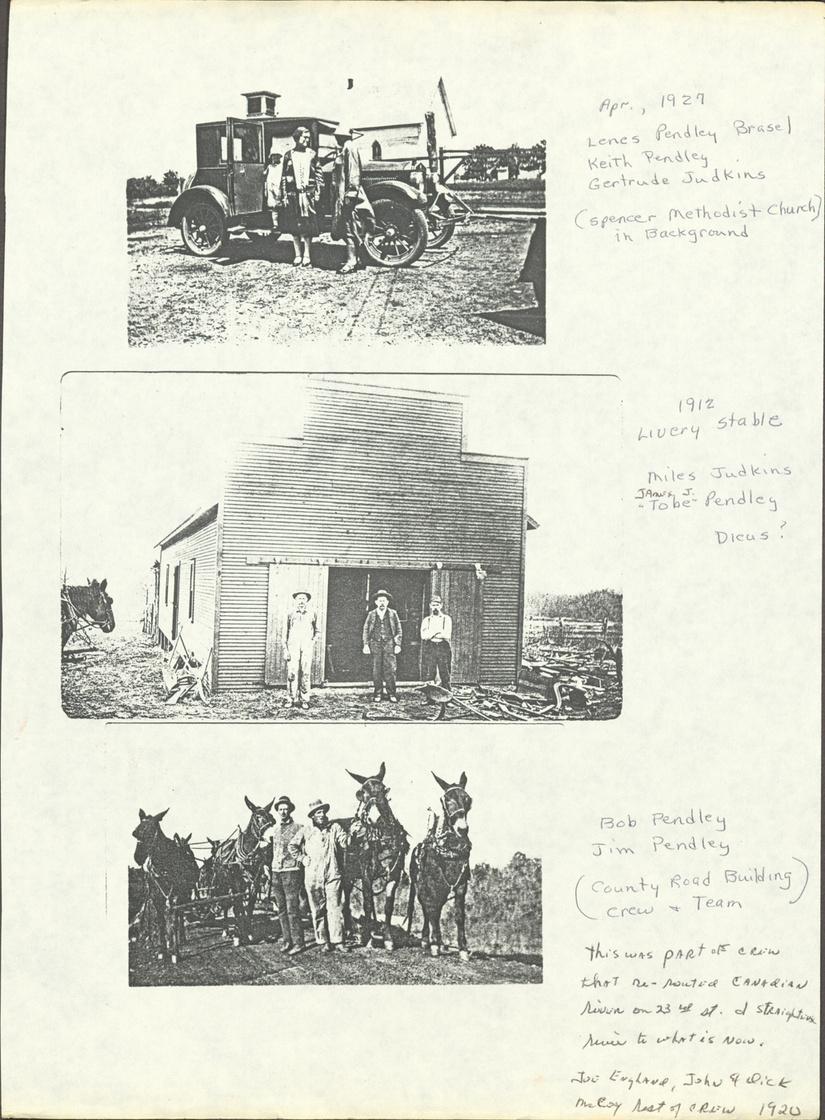 Apr., 1927
Lenes Pendley Brasel
Keith Pendley
Gertrude Judkins
(Spencer Methodist Church)
in Background
1912
Livery Stable
Miles Judkins
James J.
"Tobe" Pendley
Dicus?
Bob Pendley
Jim Pendley
(County Road Building
Crew & Team)
This was part of crew
that re-routed Canadian
River on 23rd st. &
river to what is now.
Joe England, John & Dick
McCoy Rest of crew 1920